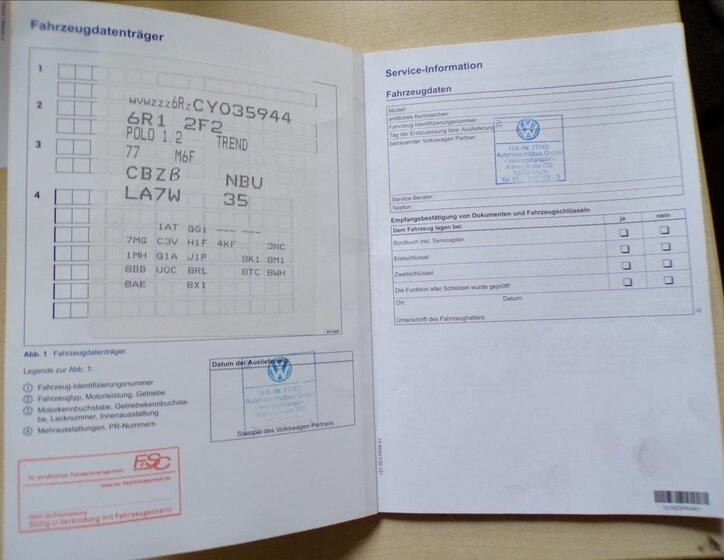 Fahrzeugdatenträger
1
2
3
4
WVWZZZ6RZCY035944
6R1 2F2
POLO 1.2 TREND
77 M6F
CBZB NBU
LA7W 35
1AT GG1 --- ---
7MG C3V H1F 4KF 3NC
1MH G1A J1P 8K1 8M1
8BB U0C 8RL 8TC 8WH
8AE 8X1
Abb. 1 Fahrzeugdatenträger
Legende zur Abb. 1:
① Fahrzeug-Identifizierungsnummer
② Fahrzeugtyp, Motorleistung, Getriebe
③ Motorkennbuchstabe, Getriebekennbuchsta-
be, Lacknummer, Innenausstattung
④ Mehrausstattungen, PR-Nummern
Datum der Auslieferung
Hdl.-Nr. 77763
Autohaus möbus GmbH
- Vertragshändler -
Stempel des Volkswagen Partners
Ihr persönliches Fuhrparkmanagement
www.fsc-fleetmanagement.de
Gültig in Verbindung mit Fahrzeugschein!
Service-Information
Fahrzeugdaten
Modell:
amtliches Kennzeichen:
Fahrzeug-Identifizierungsnummer:
Tag der Erstzulassung bzw. Auslieferung
betreuender Volkswagen Partner:
Hdl.-Nr. 77763
Autohaus möbus GmbH
- Vertragshändler -
Service-Berater:
Telefon:
Empfangsbestätigung von Dokumenten und Fahrzeugschlüsseln
Dem Fahrzeug lagen bei: ja nein
Bordbuch inkl. Serviceplan
Erstschlüssel
Zweitschlüssel
Die Funktion aller Schlüssel wurde geprüft!
Ort Datum:
Unterschrift des Fahrzeughalters: